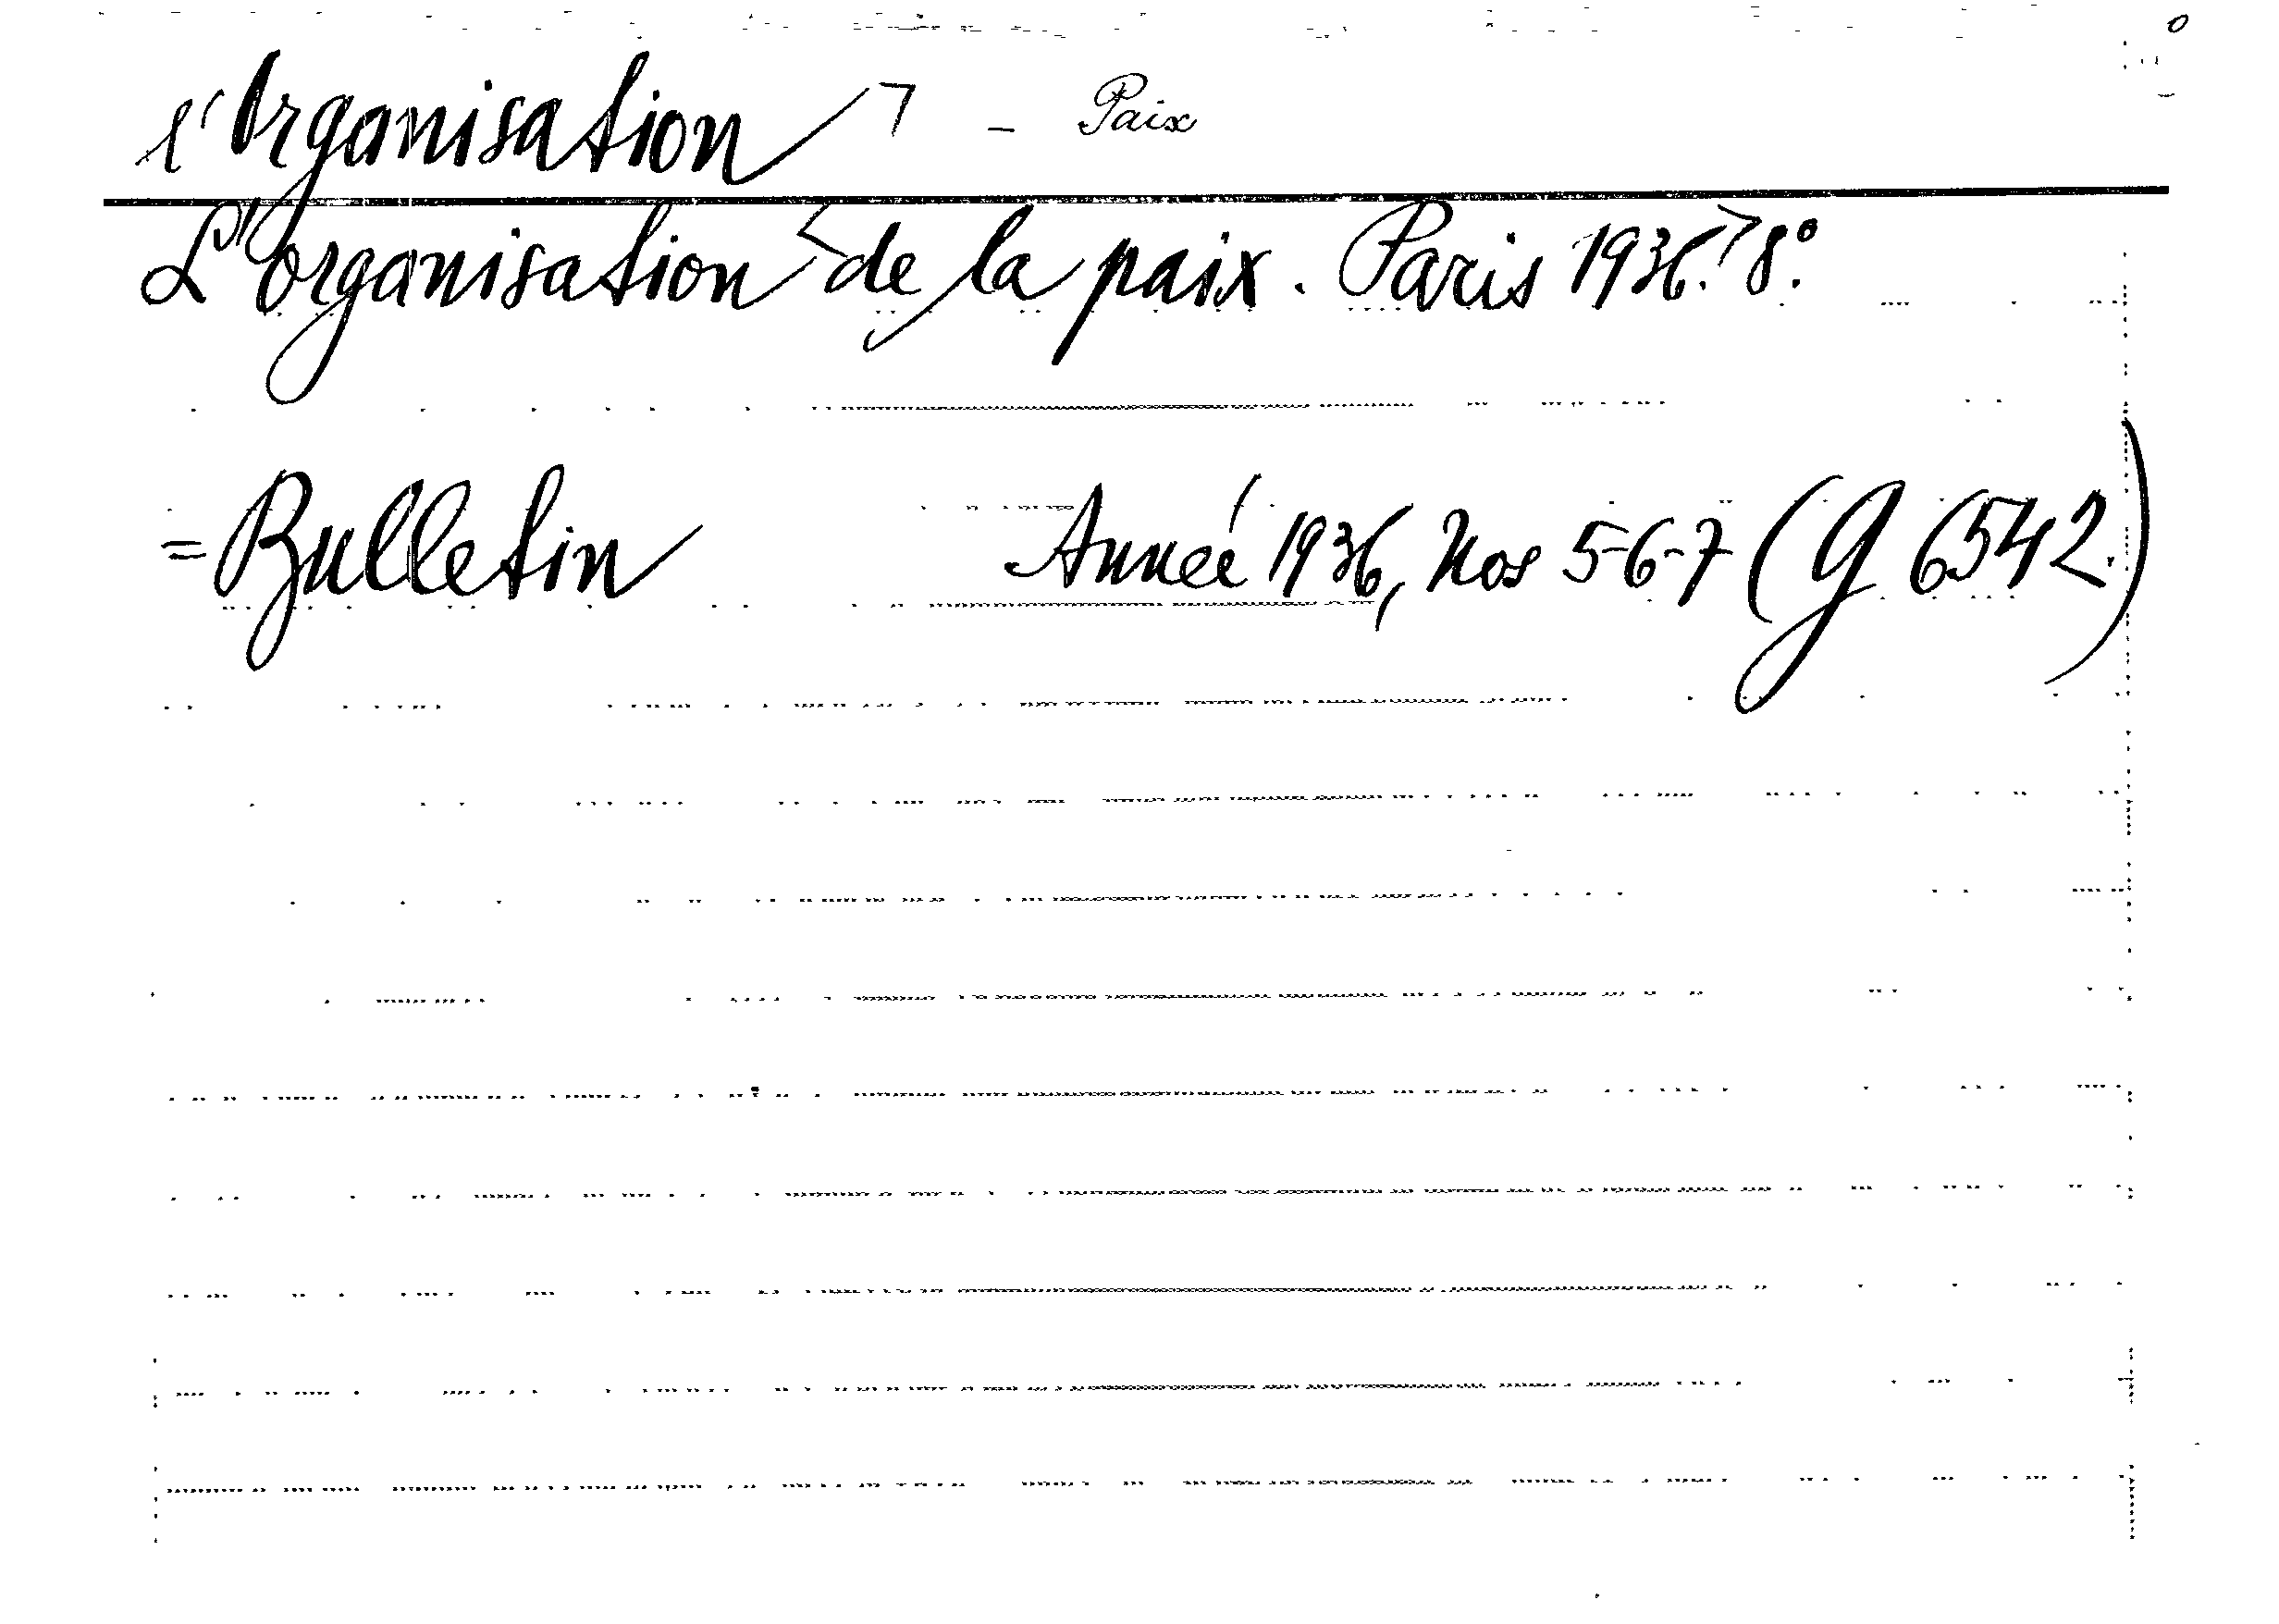 l'Organisation ⌉ - Paix
L'organisation <de la paix. Paris 1936.> 8°.
= Bulletin Année 1936, Nos 5-6-7 (G 6542.)